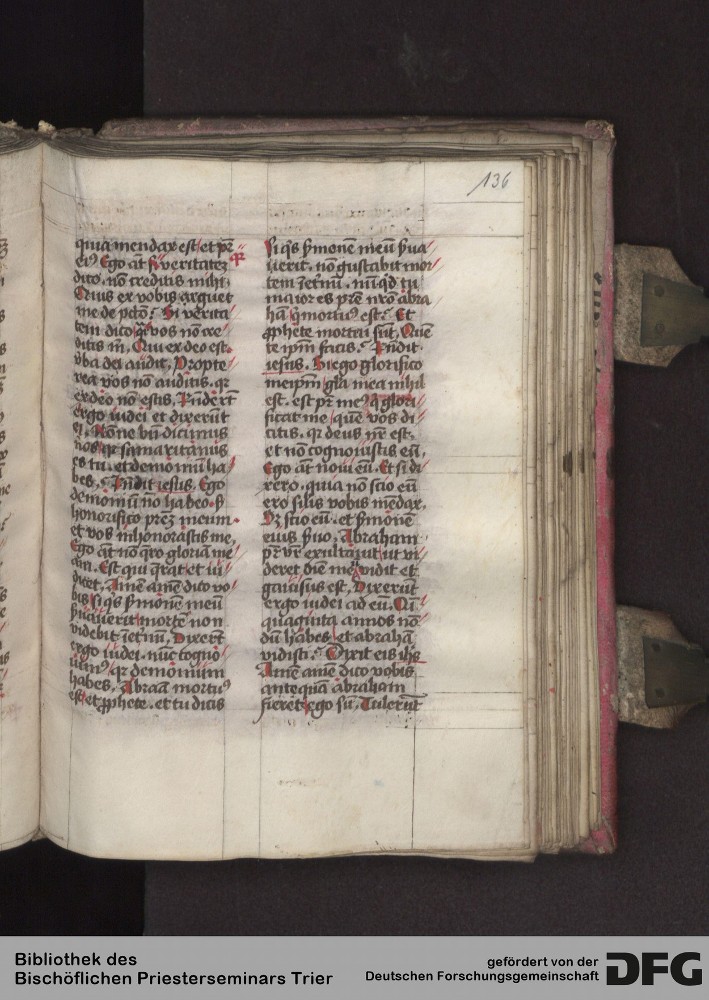 136
quia mendax est et pr̄
eiꝰ Ego at̄ si veritatez
dico. nō creditis mihi.
Quis ex vobis arguet
me de pctō? Si verita
tem dico qr̄ vos nō cre
ditis m̄. Qui ex deo est.
v̄ba dei audit. Propte
rea vos nō auditis. qr
ex deo nō estis. Rn̄dert̄
ergo iudei et dixerūt
ei. Nōne bn̄ dicimus
nos qr samaritanus
es tu. et demoniū ha
bes? Rn̄dit iesus. Ego
demoniū nō habeo. sꝫ
honorifico prēz meum.
et vos inhonorastis me.
Ego at̄ nō q̄ro gloriā me
am. Est qui q̄rat et iu
dicet. Amē amē dico vo
bis si q̄s ẜmonē meū
ẜuauerit mortē non
videbit ī et̄nū. Dixert̄
ergo iudei. nūc cogno
uimꝰ qr demonium
habes. Abraā mortuꝰ
est et ꝓphete. et tu dicis
si q̄s ẜmonē meū ẜua
uerit. nō gustabit mor
tem ī et̄nū. nūq̄d tu
maior es prē nrō abra
hā q̄ mortuꝰ est? Et
ꝓphete mortui sūt. Quē
te ipm̄ facis? Rn̄dit
iesus. Si ego glorifico
meipm̄ gl̄a mea nihil
est. est pr̄ meꝰ q̄ glori
ficat me quē vos di
citis. qr deus nr̄ est.
et nō cognouistis eū.
Ego at̄ noui eū. Et si di
xero. quia nō scio eū
ero sil̄is vobis mēdax.
Sꝫ scio eū. et ẜmonē
eius ẜuo. Abraham
pr̄ vr̄ exultauit ut vi
deret diē meū vidit et
gauisus est. Dixerūt
ergo iudei ad eū. Qn̄
quaginta annos nō
dū habes et abrahā
vidisti? Dixit eis ihs
Amē amē dico vobis
antequā abraham
fieret ego sū. Tulerūt
Bibliothek des
Bischöflichen Priesterseminars Trier
gefördert von der
Deutschen Forschungsgemeinschaft
DFG